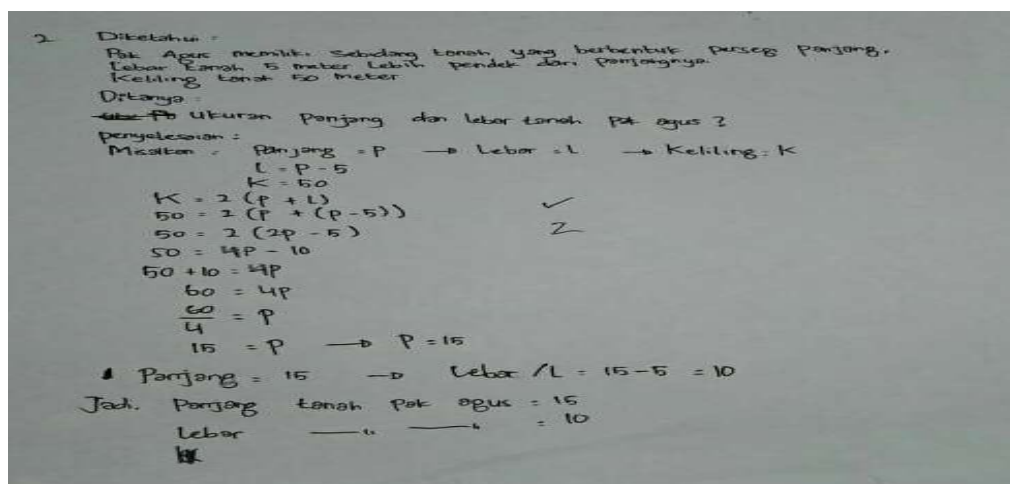 2 Diketahui :
Pak Agus memiliki sebidang tanah yang berbentuk persegi panjang.
Lebar tanah 5 meter lebih pendek dari panjangnya.
Keliling tanah 50 meter
Ditanya :
Ukuran panjang dan lebar tanah Pak agus ?
Penyelesaian :
Misalkan : Panjang = P → Lebar = L → Keliling = K
L = P - 5
K = 50
K = 2 (P + L)
50 = 2 (P + (P - 5)) ✓
50 = 2 (2P - 5) 2
50 = 4P - 10
50 + 10 = 4P
60 = 4P
60/4 = P
15 = P → P = 15
Panjang = 15 → Lebar / L = 15 - 5 = 10
Jadi. Panjang tanah Pak agus = 15
Lebar —"— —"— = 10